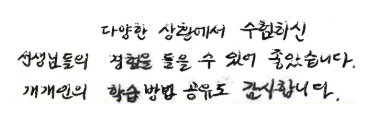 다양한 상황에서 수험하신
선생님들의 경험을 들을 수 있어 좋았습니다.
개개인의 학습방법 공유도 감사합니다.